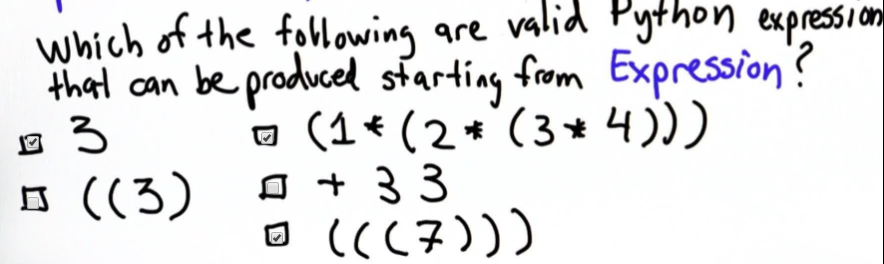 Which of the following are valid Python expression
that can be produced starting from Expression?
3
(1*(2*(3*4)))
((3)
+ 3 3
(((7)))